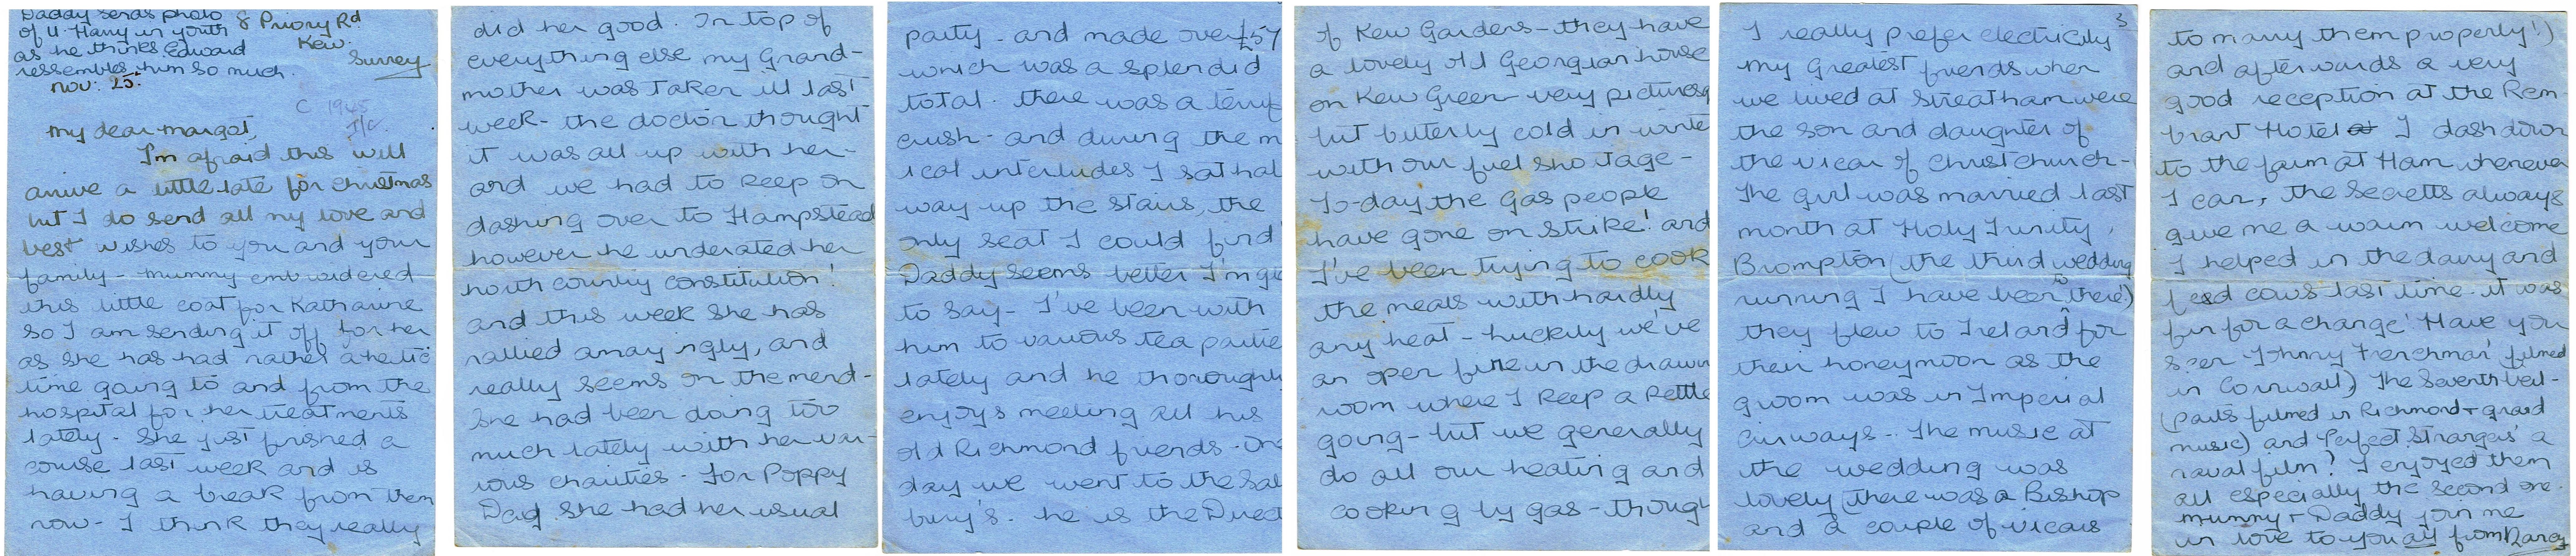 Daddy sends photo
of U. Harry in youth
as he thinks Edward
ressembles him so much.
8 Priory Rd
Kew.
Surrey
Nov: 25.
C 1945
My dear Margot,
I'm afraid this will
arrive a little late for Christmas
but I do send all my love and
best wishes to you and your
family - Mummy embroidered
this little coat for Katharine
so I am sending it off for her
as she has had rather a hectic
time going to and from the
hospital for her treatments
lately - She just finished a
course last week and is
having a break from them
now - I think they really
did her good. On top of
everything else my Grand-
mother was taken ill last
week - the doctor thought
it was all up with her -
and we had to keep on
dashing over to Hampstead
however he underated her
north country constitution!
and this week she has
rallied amazingly, and
really seems on the mend -
She had been doing too
much lately with her var-
ious charities - For Poppy
Day she had her usual
party - and made over £57
which was a splendid
total. there was a terrif
crush - and during the m
ical interludes I sat hal
way up the stairs, the
only seat I could find
Daddy seems better I'm gl
to say - I've been with
him to various tea partie
lately and he thoroughly
enjoys meeting all his
old Richmond friends. One
day we went to the Sal
bury's - he is the Direct
of Kew Gardens - they have
a lovely old Georgian house
on Kew Green - very picturesq
but bitterly cold in winte
with our fuel shortage -
To-day the gas people
have gone on strike! and
I've been trying to cook
the meals with hardly
any heat - Luckily we've
an open fire in the drawn
room where I keep a kettle
going - but we generally
do all our heating and
cooking by gas - though
3
I really prefer electricity
My greatest friends when
we lived at Streatham were
the son and daughter of
the vicar of Christchurch -
The girl was married last
month at Holy Trinity,
Brompton (the third wedding
running I have been to there!)
they flew to Ireland for
their honeymoon as the
groom was in Imperial
Airways - The music at
the wedding was
lovely (there was a Bishop
and a couple of vicars
to marry them properly!)
and afterwards a very
good reception at the Rem-
brant Hotel I dash down
to the farm at Ham whenever
I can, the Secretts always
give me a warm welcome
I helped in the dairy and
fed cows last time - it was
fun for a change! Have you
seen 'Johnny Frenchman' filmed
in Cornwall) The Seventh Veil -
(parts filmed in Richmond + grand
music) and 'Perfect Strangers' a
naval film? I enjoyed them
all especially the second one.
Mummy + Daddy join me
in love to you all from